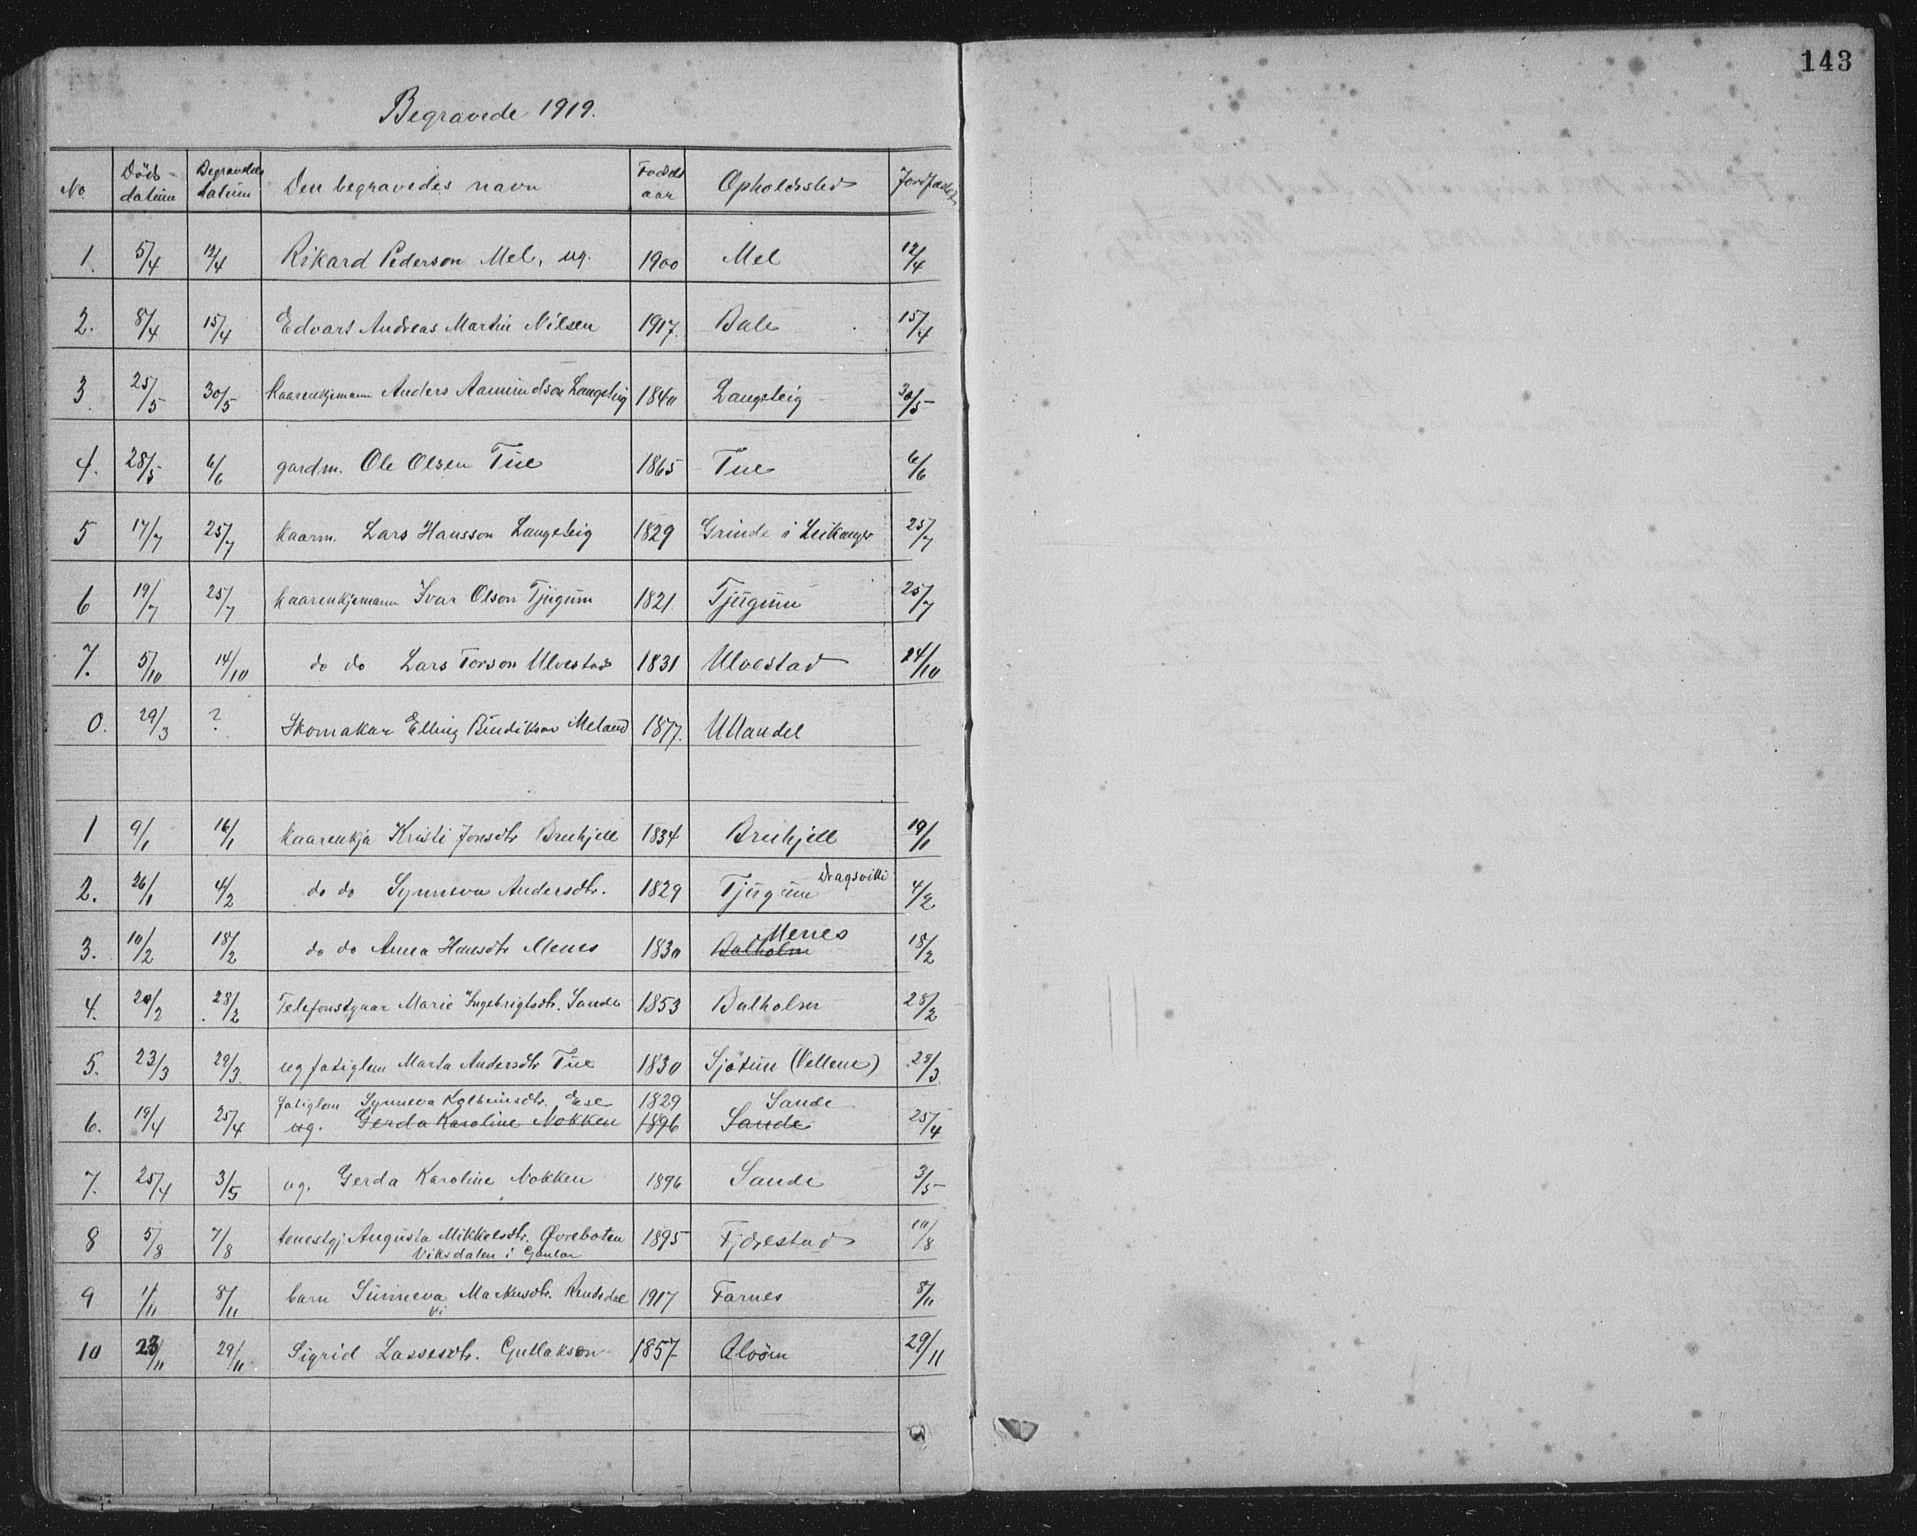 143
Begravede 1919.
No Døds-datum Begravelses datum Den begravedes navn Fødsels aar Opholdssted Jordfæstet
1. 5/4 12/4 Rikard Pederson Mel, ug. 1900 Mel 12/4
2. 8/4 15/4 Edvart Andreas Martin Nilsen 1917. Bale 15/4
3 25/5 30/5 kaarenkjemann Anders Aamundson Langeteig 1840 Langeteig 30/5
4. 28/5 6/6 gardm. Ole Olsen Tue 1865 Tue 6/6
5 17/7 25/7 kaarm. Lars Hansson Langeteig 1829 Grinde i Leikanger 25/7
6 19/7 25/7 kaarenkjemann Ivar Olson Tjugum 1821. Tjugum 25/7
7. 5/10 14/10 do do Lars Torson Ulvestad 1831 Ulvestad 14/10
0. 29/3 ? Skomakar Elling Bendikson Meland 1877. Ullandel
1 9/1 16/1 kaarenkja Kristi Jonsdtr Brekjell 1834 Brekjell 19/1
2. 26/1 4/2 do do Synneva Andersdtr. 1829 Tjugum Dragsviki 4/2
3. 10/2 18/2 do do Anna Hansdtr Menes 1830 Balholm Menes 18/2
4. 20/2 28/2 Telefonstyrar Marie Ingebrigtsdtr. Sande 1853 Balholm 28/2
5. 23/3 29/3 ug fatiglem Marta Andersdtr Tue 1830 Sjøtun (Vellene) 29/3
fatiglem Synneva Kolbeinsdtr. Ese 1829 Sande
6. 19/4 25/4 ug. Gerda Karoline Nokken 1896 Sande 25/4
7. 25/4 3/5 ug. Gerda Karoline Nokken 1896 Sande 3/5
8 5/8 7/8 tenestgj Augusta Mikkelsdtr. Øvrebøten 1895 Fjærestad 10/8
Viksdalen i Gaular
9 1/11 8/11 barn Sunneva Markusdtr. Rendedal 1917 Farnes 8/11
Vi
10 23/11 29/11 Sigrid Lassesdtr. Gullakson 1857 Aløsen 29/11